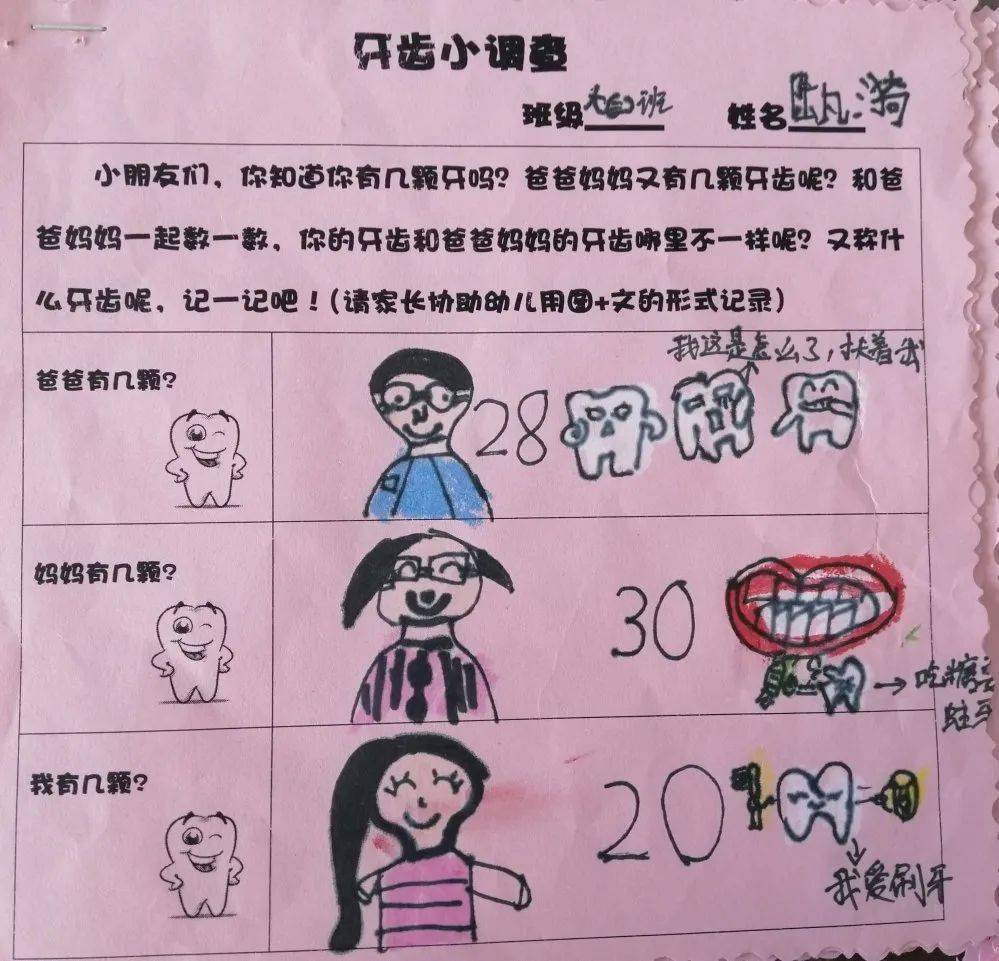 牙齿小调查
班级 班 姓名 漪
小朋友们，你知道你有几颗牙吗？爸爸妈妈又有几颗牙齿呢？和爸
爸妈妈一起数一数，你的牙齿和爸爸妈妈的牙齿哪里不一样呢？又称什
么牙齿呢，记一记吧！(请家长协助幼儿用图+文的形式记录)
我这是怎么了，扶着我
爸爸有几颗？
28
妈妈有几颗？
30
吃糖
蛀牙
我有几颗？
20
我爱刷牙